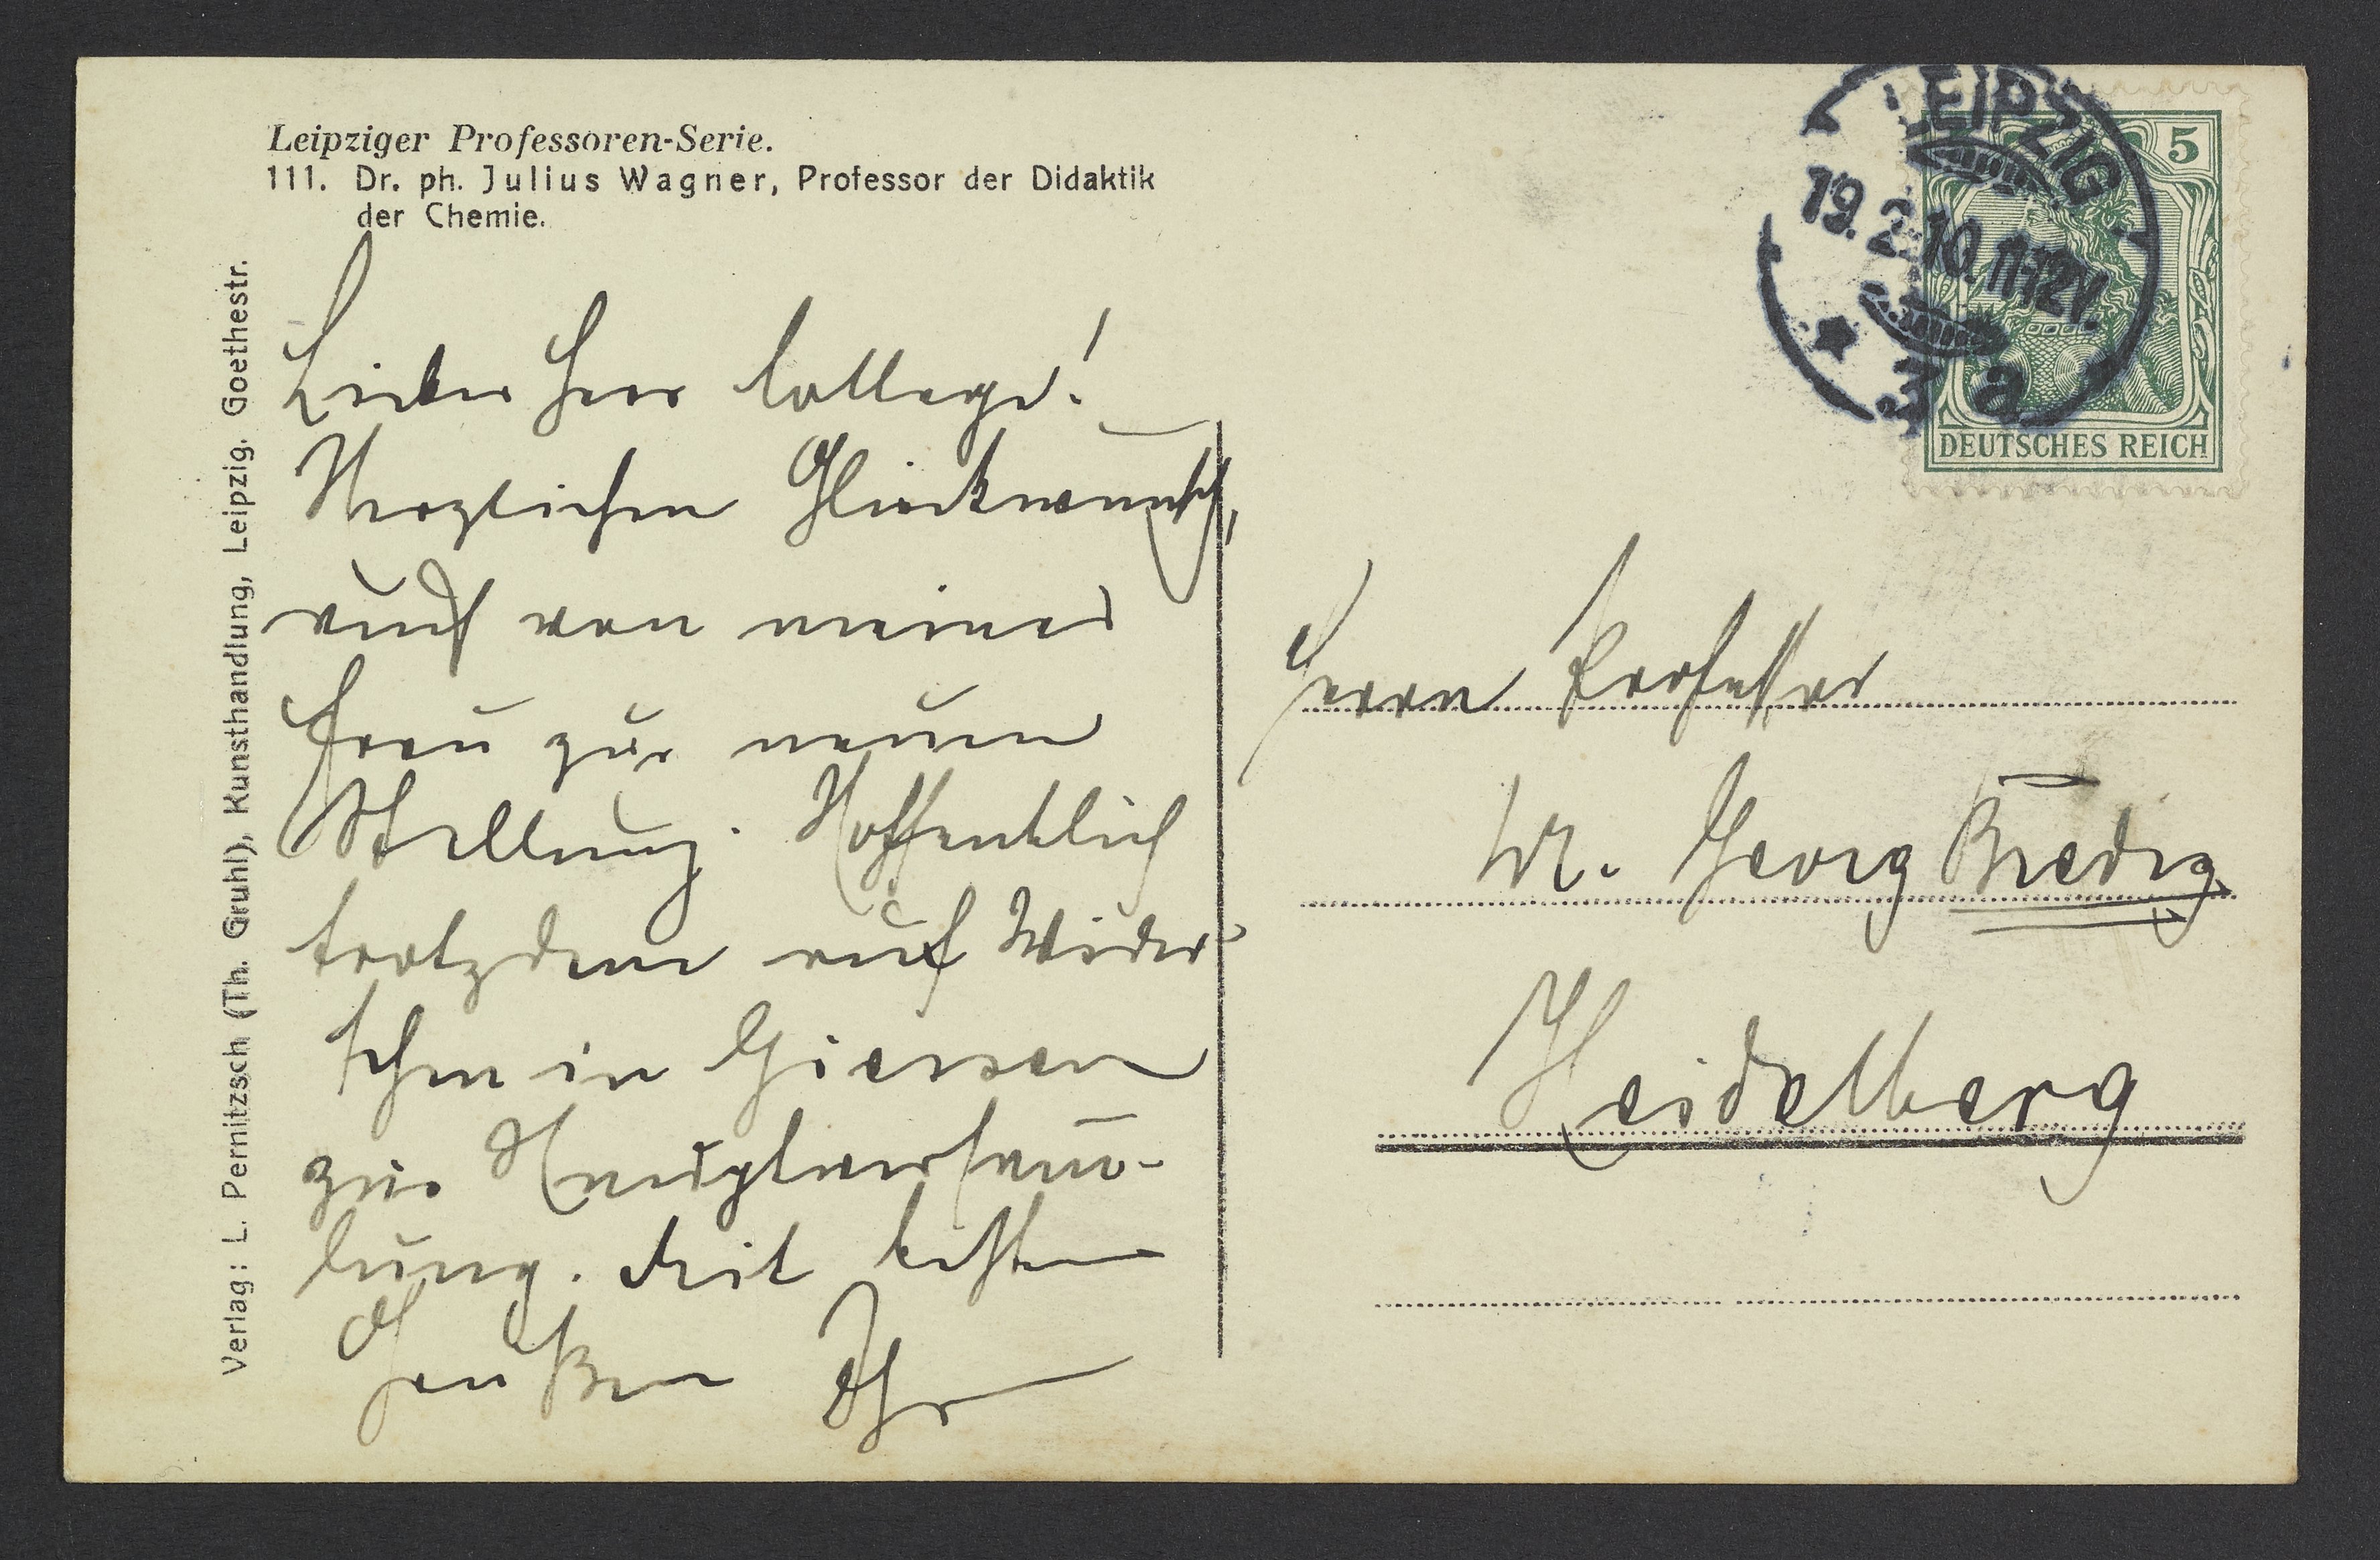 Leipziger Professoren-Serie.
111. Dr. ph. Julius Wagner, Professor der Didaktik
der Chemie.
Verlag: L. Pernitzsch (Th. Gruhl), Kunsthandlung, Leipzig. Goethestr.
Lieber Herr College!
Herzlichen Glückwunsch,
auch von meiner
Frau zur neuen
Stellung. Hoffentlich
trotzdem auf Wieder-
sehn in Giessen
zur Hauptversamm-
lung. Mit besten
Grüßen Ihr
LEIPZIG
19.2.10.11-12V.
* 3 a
5
DEUTSCHES REICH
Herrn Professor
Dr. Georg Bredig
Heidelberg